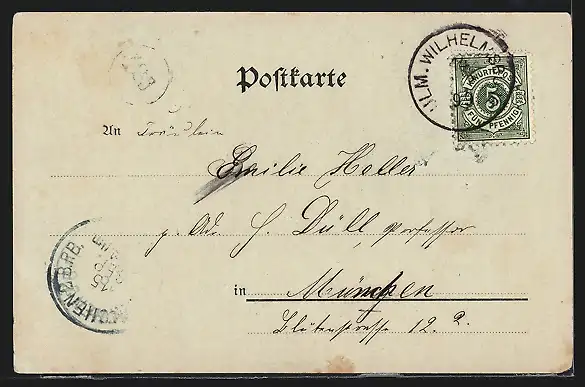 ULM. WILHELMS
WÜRTTEMB.
5
FÜNF PFENNIG
Postkarte
An Fräulein
Emilie Heller
p. Ad. H. Düll, Professor
in München
Blütenstrasse 12 a.
MÜNCHEN 2 B.P.B.